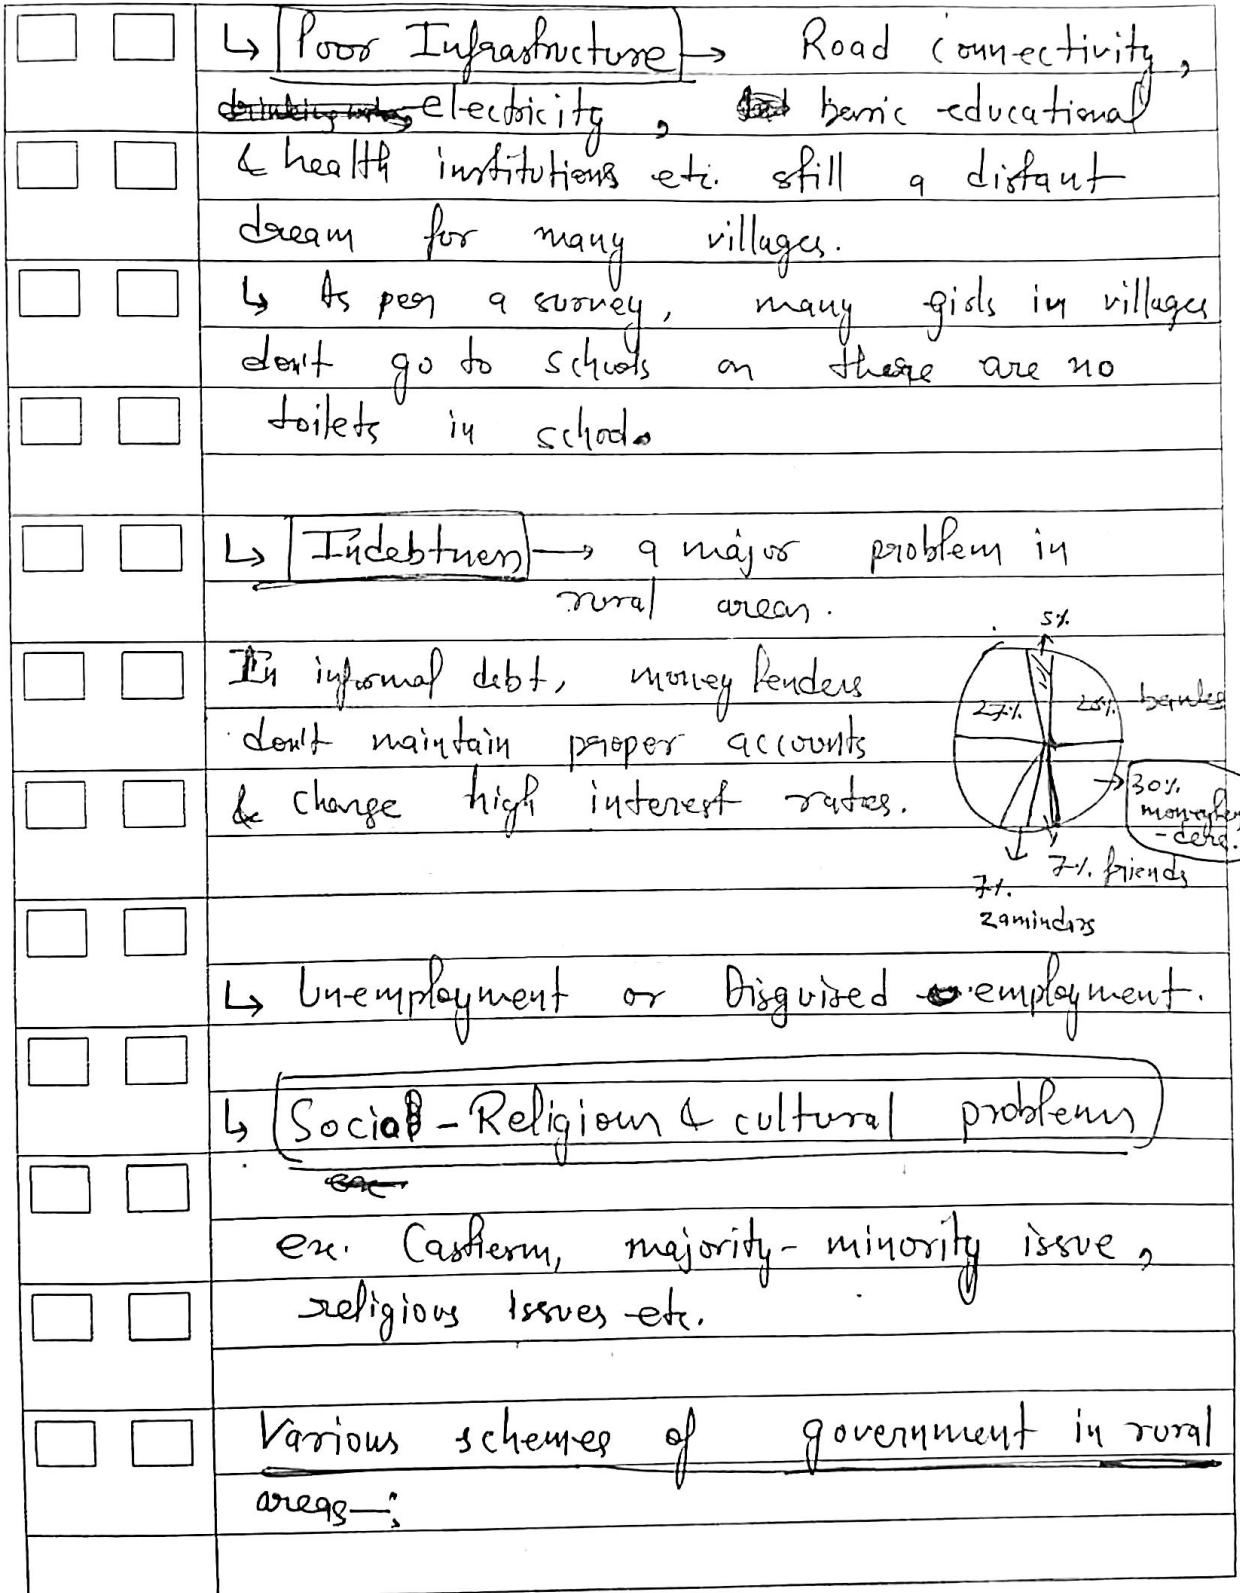 ↳ Poor Infrastructure → Road connectivity,
electricity, basic educational
& health institutions etc. still a distant
dream for many villages.
↳ As per a survey, many girls in villages
don't go to schools as there are no
toilets in school.
↳ Indebtness → a major problem in
rural areas.
5%
In informal debt, money lenders
27% 25% banks
don't maintain proper accounts
& charge high interest rates.
→ 30%
moneylen
-ders.
7% friends
7%
zaminders
↳ Un-employment or Disguised employment.
↳ Social - Religious & cultural problems
ex. Casteism, majority - minority issue,
religious issues etc.
Various schemes of government in rural
areas—: